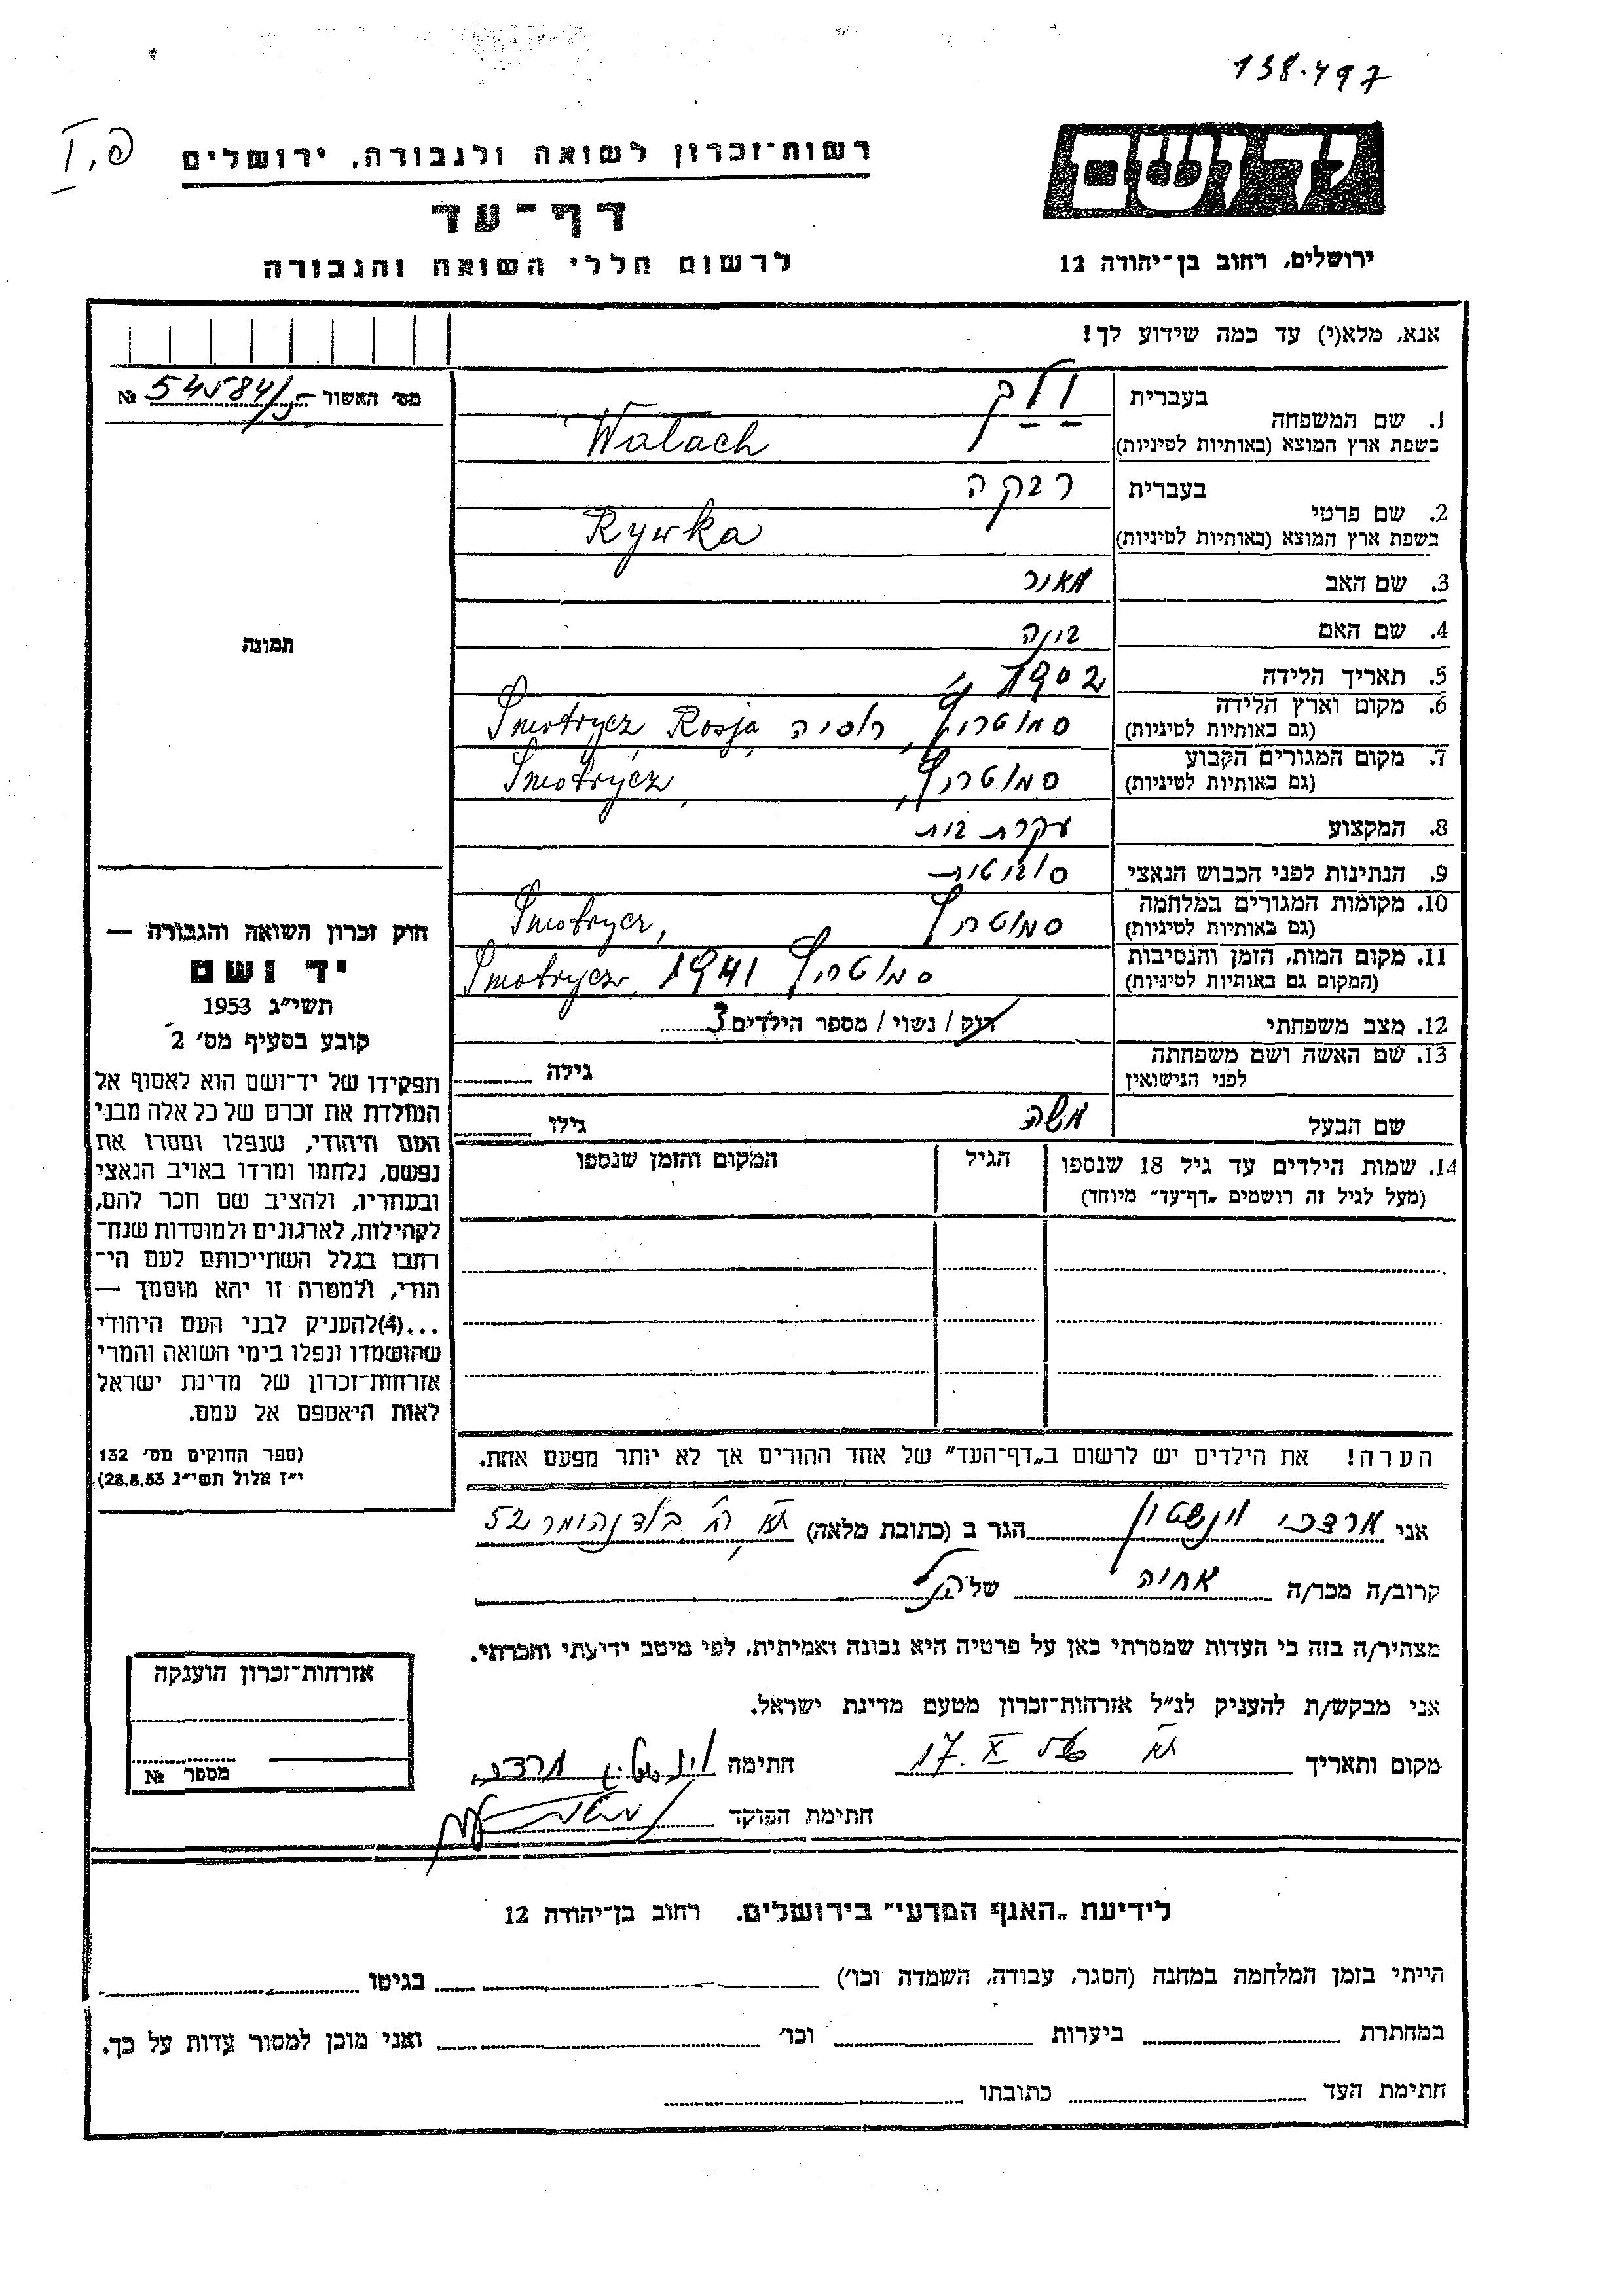 138.497
פ, I
רשות־זכרון לשואה ולגבורה, ירושלים
דף־עד
לרשום חללי השואה והגבורה
ידושם
ירושלים, רחוב בן־יהודה 12
אנא, מלא(י) עד כמה שידוע לך!
מס׳ האשור № 54584/
תמונה
1. שם המשפחה
בעברית ולך
בשפת ארץ המוצא (באותיות לטיניות) Walach
2. שם פרטי
בעברית רבקה
בשפת ארץ המוצא (באותיות לטיניות) Rywka
3. שם האב מאור
4. שם האם
5. תאריך הלידה 1902
6. מקום וארץ הלידה סמוטריץ, רוסיה Smotrycz, Rosja
(גם באותיות לטיניות)
7. מקום המגורים הקבוע סמוטריץ, Smotrycz,
(גם באותיות לטיניות)
8. המקצוע עקרת בית
9. הנתינות לפני הכבוש הנאצי סוביטית
10. מקומות המגורים במלחמה סמוטריץ Smotrycz,
(גם באותיות לטיניות)
11. מקום המות, הזמן והנסיבות סמוטריץ 1941 Smotrycz,
(המקום גם באותיות לטיניות)
12. מצב משפחתי רוק / נשוי / מספר הילדים 3
13. שם האשה ושם משפחתה
לפני הנישואין
גילה
שם הבעל משה
גילו
14. שמות הילדים עד גיל 18 שנספו
(מעל לגיל זה רושמים „דף־עד״ מיוחד)
הגיל
המקום והזמן שנספו
חוק זכרון השואה והגבורה —
יד ושם
תשי״ג 1953
קובע בסעיף מס׳ 2
תפקידו של יד־ושם הוא לאסוף אל
המולדת את זכרם של כל אלה מבני
העם היהודי, שנפלו ומסרו את
נפשם, נלחמו ומרדו באויב הנאצי
ובעוזריו, ולהציב שם וזכר להם,
לקהילות, לארגונים ולמוסדות שנח־
רבו בגלל השתייכותם לעם הי־
הודי, ולמטרה זו יהא מוסמך —
...(4)להעניק לבני העם היהודי
שהושמדו ונפלו בימי השואה והמרי
אזרחות־זכרון של מדינת ישראל
לאות היאספם אל עמם.
(ספר החוקים מס׳ 132
י״ז אלול תשי״ג 28.8.53)
הערה! את הילדים יש לרשום ב„דף־העד״ של אחד ההורים אך לא יותר מפעם אחת.
אני מרדכי וינשטוין הגר ב (כתובת מלאה) תא 52
קרוב/ה מכר/ה אחיה של הנ״ל
מצהיר/ה בזה כי העדות שמסרתי כאן על פרטיה היא נכונה ואמיתית, לפי מיטב ידיעתי והכרתי.
אני מבקש/ת להעניק לנ״ל אזרחות־זכרון מטעם מדינת ישראל.
מקום ותאריך תא 17. X חתימה וינשטוין מרדכי
חתימת הפוקד
אזרחות־זכרון הוענקה
מספר №
לידיעת „האגף המדעי״ בירושלים. רחוב בן־יהודה 12
הייתי בזמן המלחמה במחנה (הסגר, עבודה, השמדה וכו׳) בגיטו
במחתרת ביערות וכו׳ ואני מוכן למסור עדות על כך.
חתימת העד כתובתו